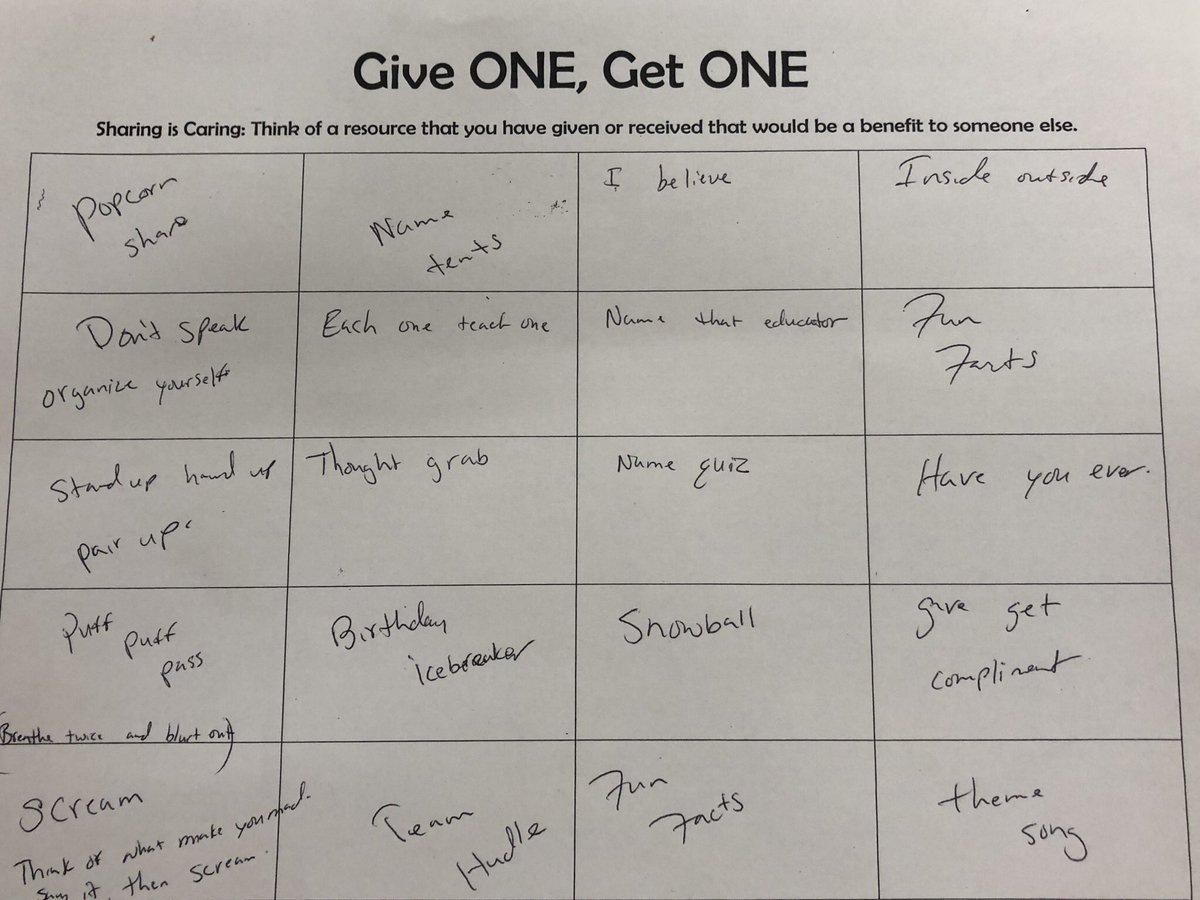 Give ONE, Get ONE
Sharing is Caring: Think of a resource that you have given or received that would be a benefit to someone else.
Popcorn
share
Name
tents
I believe
Inside outside
Don't speak
organize yourself
Each one teach one
Name that educator
Fun
Facts
Stand up hand up
pair up
Thought grab
Name quiz
Have you ever.
Puff
puff
pass
(Breathe twice and blurt out)
Birthday
icebreaker
Snowball
give get
compliment
Scream
Think of what make you mad.
Say it, then scream.
Team
Hudle
Fun
Facts
theme
song